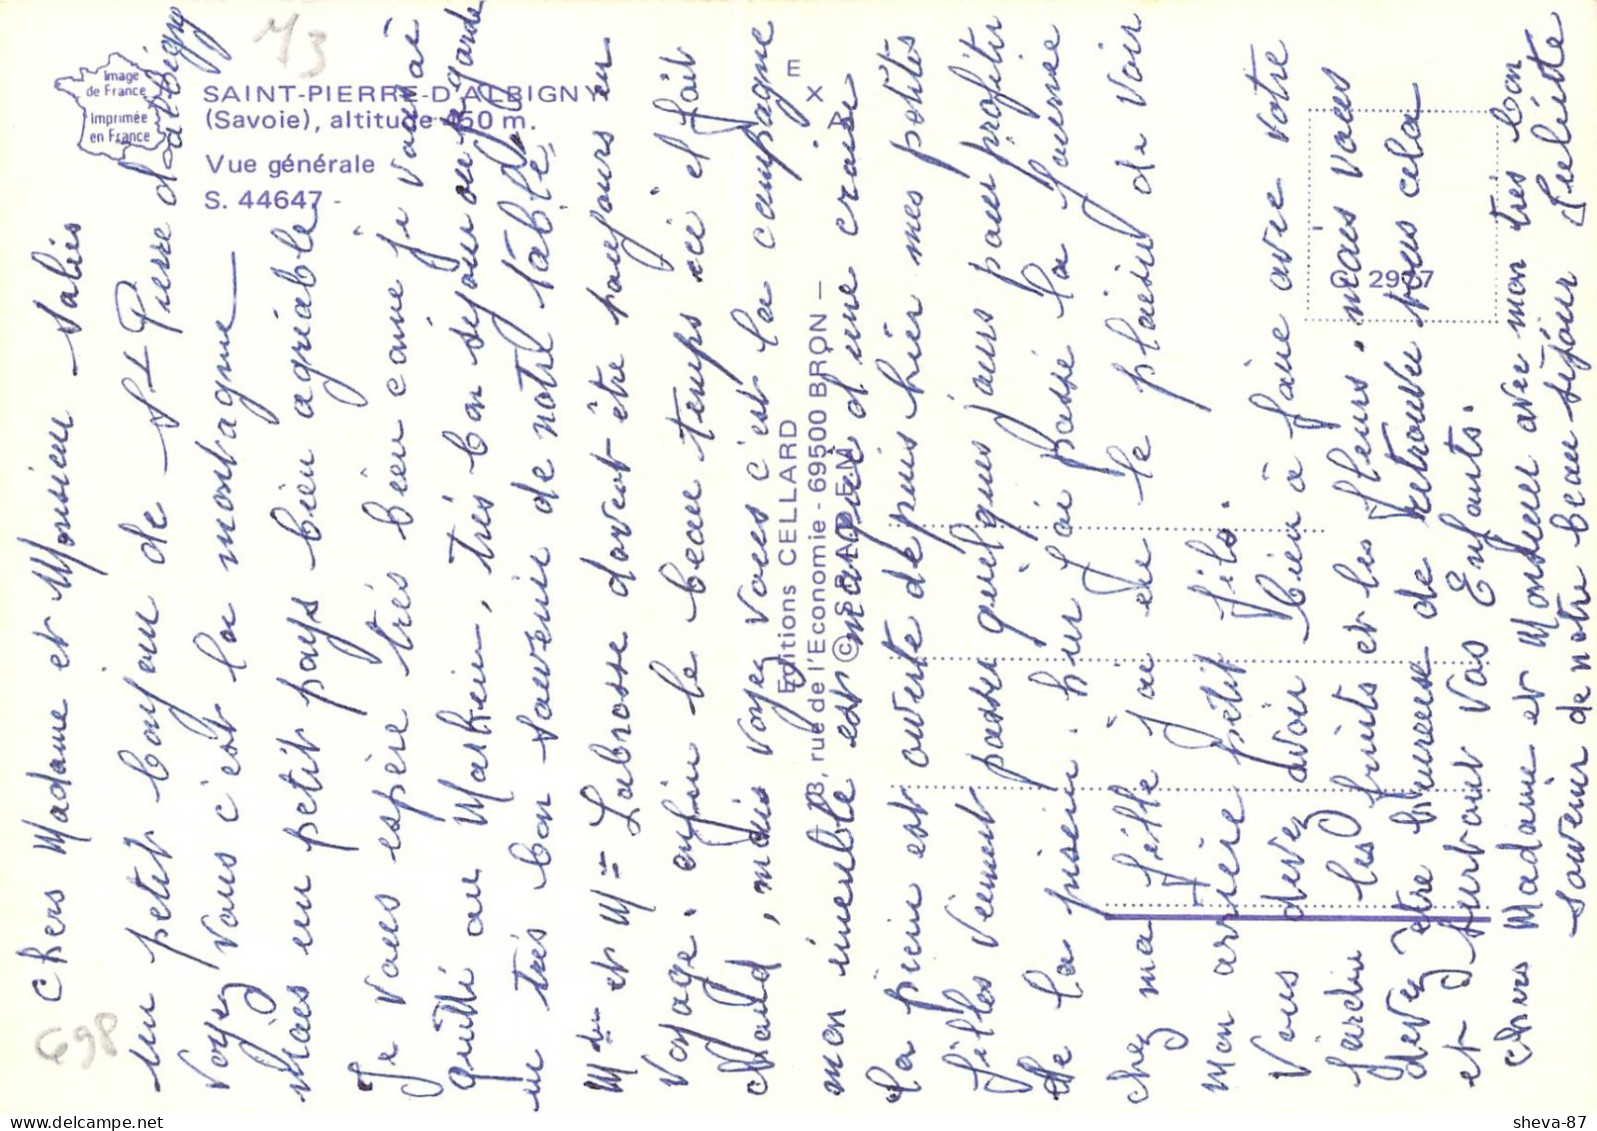 Image
de France
Imprimée
en France
SAINT-PIERRE-D'ALBIGNY
(Savoie), altitude 450 m.
Vue générale
S. 44647 -
Editions CELLARD
3, rue de l'Economie - 69500 BRON -
EX
2907
M3
698
Chers Madame et Monsieur Saliès
un petit bonjour de St Pierre d'albigny
voyez vous c'est la montagne
mais un petit pays bien agriable
Je vous espère très bien come je vous ai
quitté au Markein, très bon sejour ou garde
un très bon souvenir de notre table
Mdme et Mr Labrosse doivent être toujours en
voyage. enfin le beau temps ici et fait
chaud, mais voyez vous c'est la campagne
mon imeuble est marqué d'une craise
la picine est ouverte depuis hier mes petites
filles viennent passer quelques jours pour profitir
de la piscin. hier j'ai passé la journée
chez ma fille j'ai eu le plaisir de voir
mon arrière petit fils.
Vous devez avoir bien à faire avec votre
jardin les fruits et les fleurs. mais vous
devez être heureux de retrouver tous cela
et surtout vos Enfants.
chers Madame et Monsieur avec mon très bon
souvenir de notre beau séjour Juliette
sheva-87